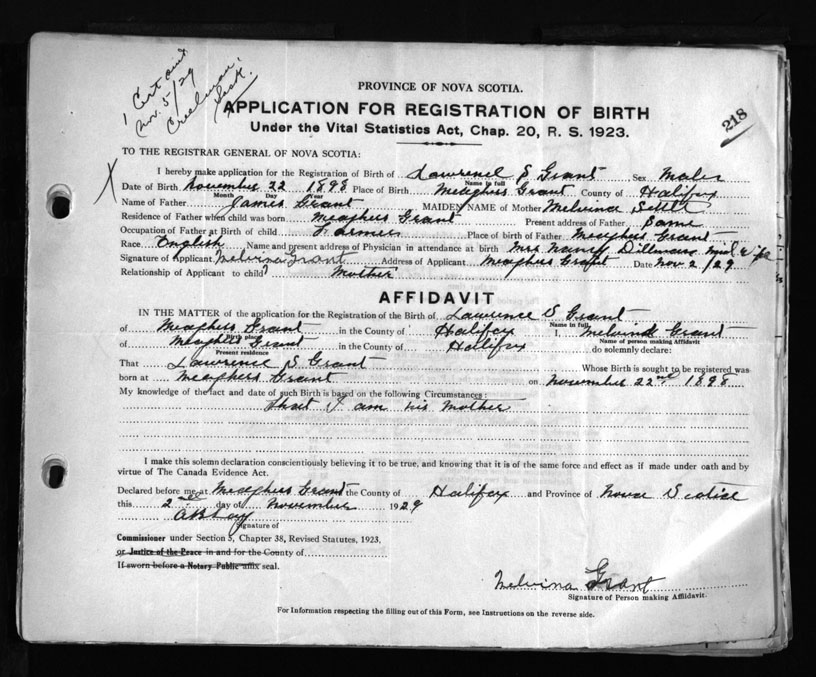 1 Cert
Nov. 5/29
Creelman
PROVINCE OF NOVA SCOTIA.
218
APPLICATION FOR REGISTRATION OF BIRTH
Under the Vital Statistics Act, Chap. 20, R. S. 1923.
TO THE REGISTRAR GENERAL OF NOVA SCOTIA:
X
I hereby make application for the Registration of Birth of Lawrence S Grant Sex Male
Name in full
Date of Birth November 22 1898 Place of Birth Meaghers Grant County of Halifax
Month Day Year
Name of Father James Grant MAIDEN NAME of Mother Melvina
Residence of Father when child was born Meaghers Grant Present address of Father Same
Occupation of Father at Birth of child Farmer Place of birth of Father Meaghers Grant
Race English Name and present address of Physician in attendance at birth Mrs Nancy Dillman Mid Wife
Signature of Applicant Melvina Grant Address of Applicant Meaghers Grant Date Nov 2/29
Relationship of Applicant to child? Mother
AFFIDAVIT
IN THE MATTER of the application for the Registration of the Birth of Lawrence S Grant
Name in full
of Meaghers Grant in the County of Halifax I, Melvina Grant
Birth place Name of person making Affidavit
of Meaghers Grant in the County of Halifax do solemnly declare:
Present residence
That Lawrence S Grant Whose Birth is sought to be registered was
born at Meaghers Grant on November 22nd 1898
My knowledge of the fact and date of such Birth is based on the following Circumstances:
That I am his Mother
I make this solemn declaration conscientiously believing it to be true, and knowing that it is of the same force and effect as if made under oath and by
virtue of The Canada Evidence Act.
Declared before me at Meaghers Grant the County of Halifax and Province of Nova Scotia
this 2nd day of November 1929
Signature of
Commissioner under Section 5, Chapter 38, Revised Statutes, 1923,
or Justice of the Peace in and for the County of
If sworn before a Notary Public affix seal.
Melvina Grant
Signature of Person making Affidavit.
For Information respecting the filling out of this Form, see Instructions on the reverse side.